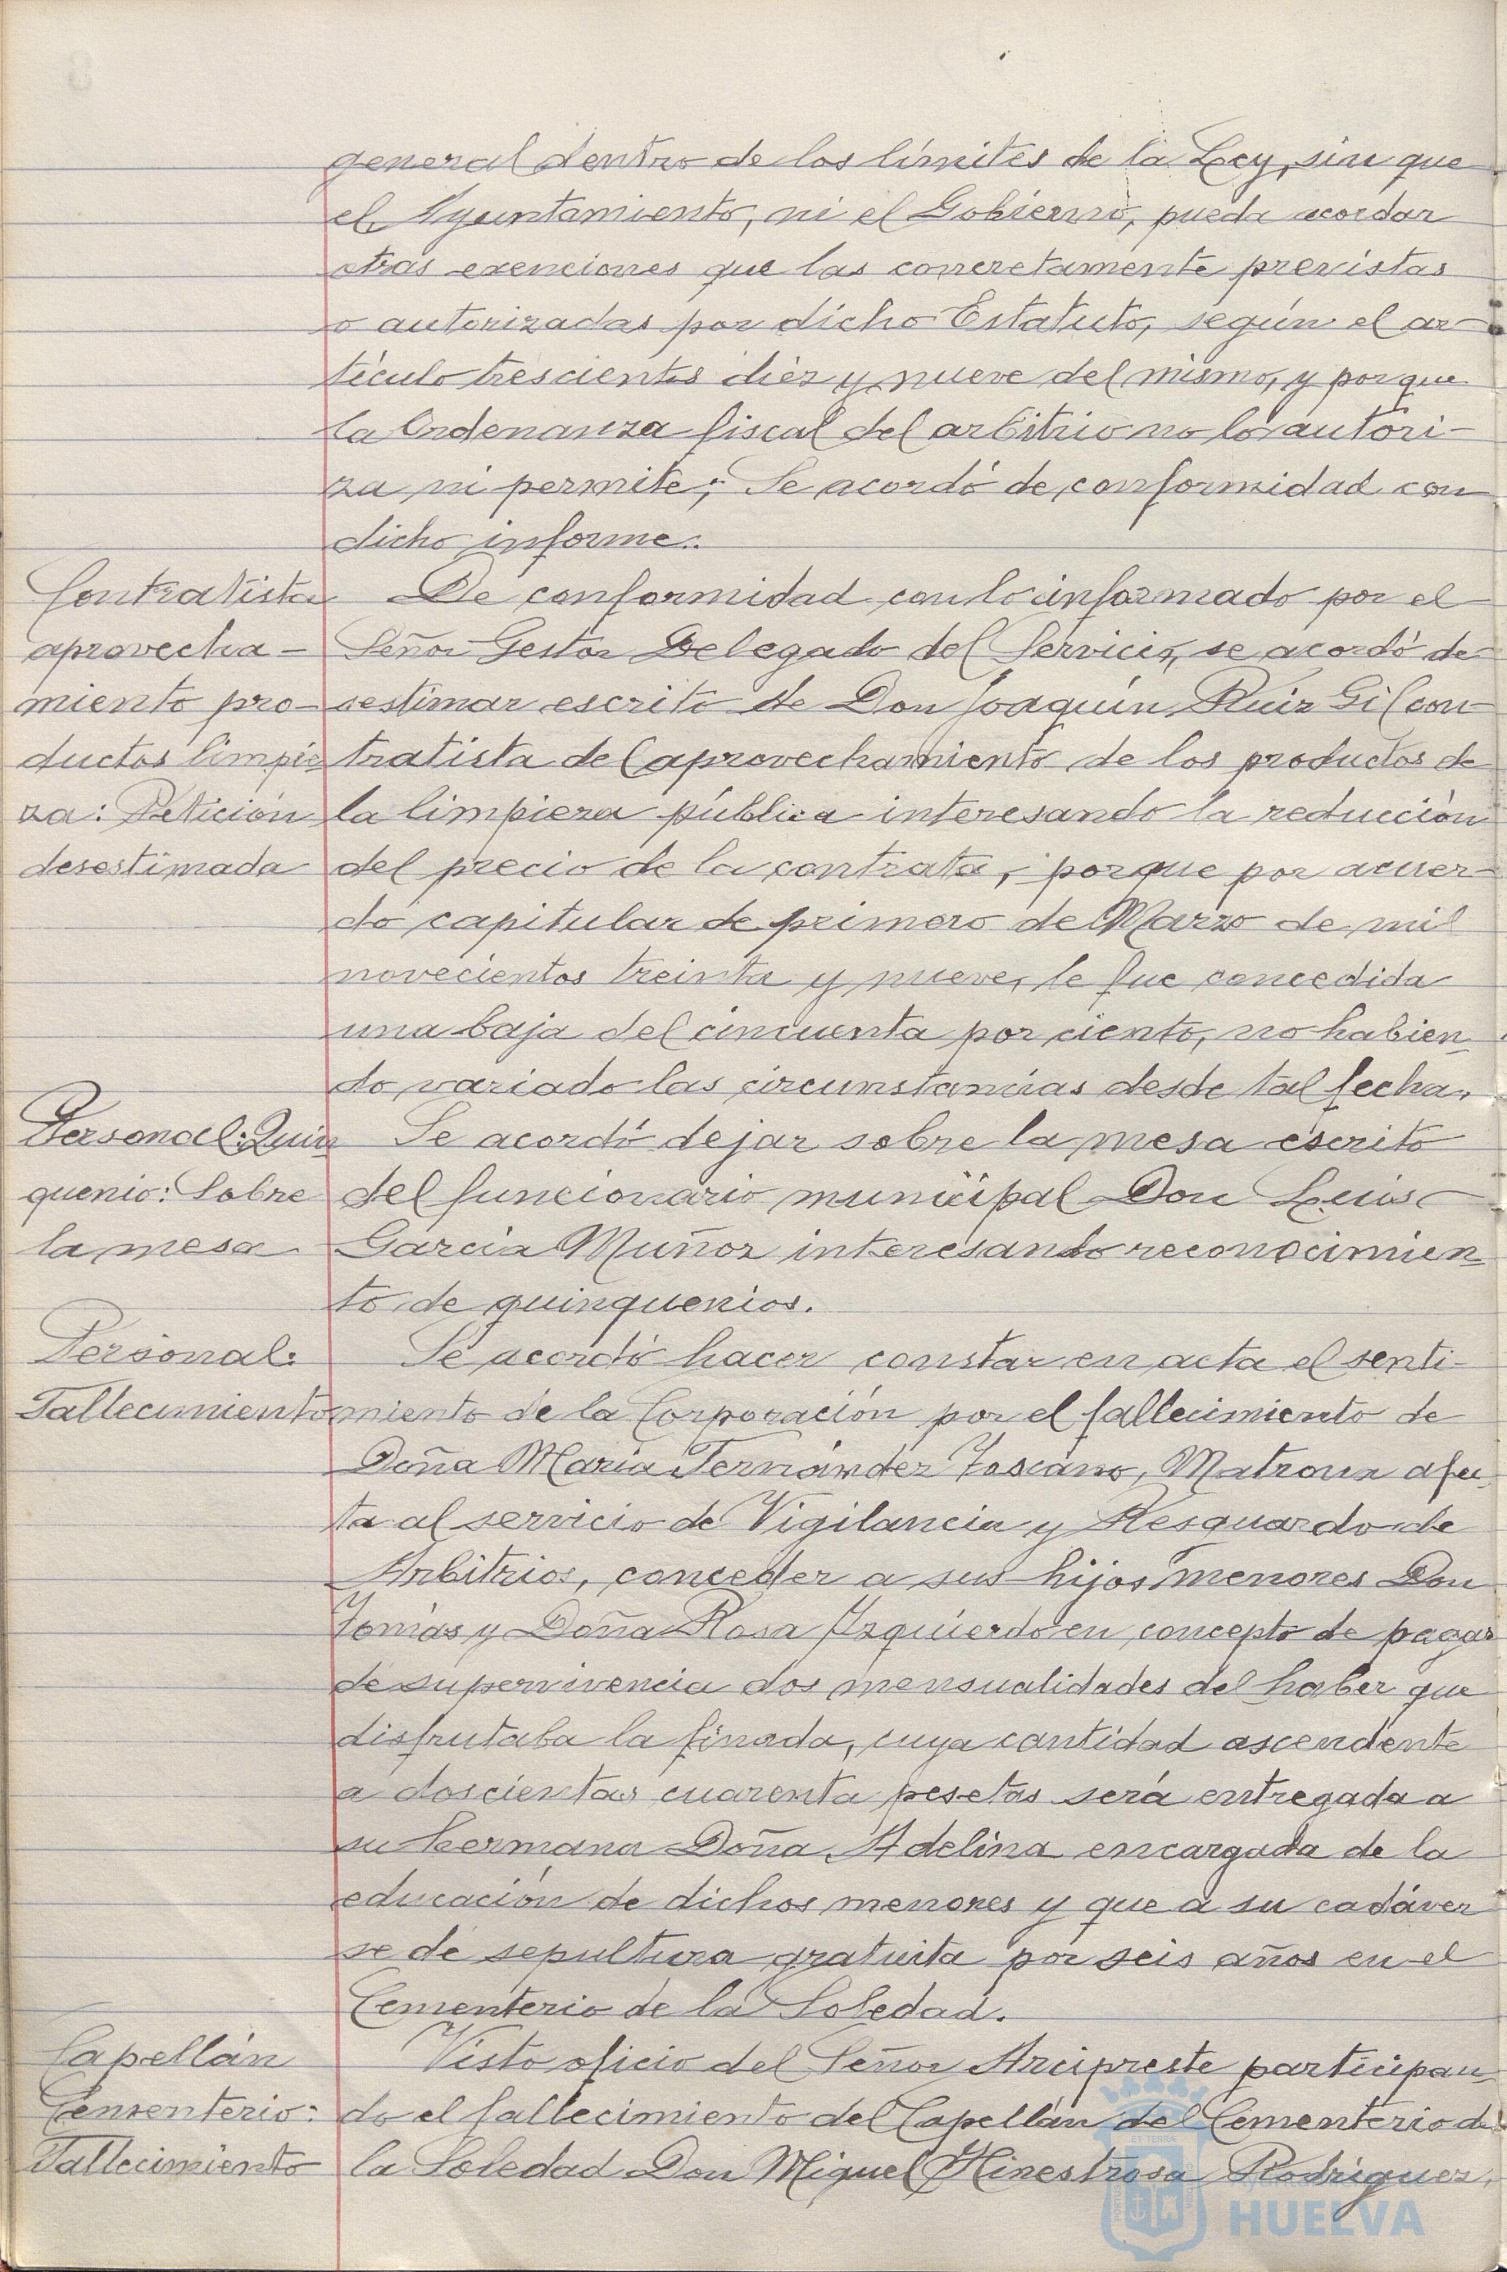 general dentro de los límites de la Ley, sin que
el Ayuntamiento, ni el Gobierno, pueda acordar
otras exenciones que las concretamente previstas
o autorizadas por dicho Estatuto, según el ar-
tículo trescientos diez y nueve del mismo, y porque
la Ordenanza fiscal del arbitrio no lo autori-
za ni permite; Se acordó de conformidad con
dicho informe.
Contratista
aprovecha-
miento pro-
ductos limpie
za: Petición
desestimada
De conformidad con lo informado por el
Señor Gestor Delegado del Servicio, se acordó de-
sestimar escrito de Don Joaquín Ruiz Gil con-
tratista del aprovechamiento de los productos de
la limpieza pública interesando la reducción
del precio de la contrata, porque por acuer-
do capitular de primero de Marzo de mil
novecientos treinta y nueve, le fue concedida
una baja del cincuenta por ciento, no habien-
do variado las circunstancias desde tal fecha.
Personal: Quin
quenio: Sobre
la mesa
Se acordó dejar sobre la mesa escrito
del funcionario municipal Don Luis
García Muñoz interesando reconocimien-
to de quinquenios.
Personal:
Fallecimiento
Se acordó hacer constar en acta el senti-
miento de la Corporación por el fallecimiento de
Doña María Fernández Toscano, Matrona afec-
ta al servicio de Vigilancia y Resguardo de
Arbitrios, conceder a sus hijos menores Don
Tomás y Doña Rosa Izquierdo en concepto de pagas
de supervivencia dos mensualidades del haber que
disfrutaba la finada, cuya cantidad ascendente
a doscientas cuarenta pesetas será entregada a
su hermana Doña Adelina encargada de la
educación de dichos menores y que a su cadáver
se dé sepultura gratuita por seis años en el
Cementerio de la Soledad.
Capellán
Cementerio:
Fallecimiento
Visto oficio del Señor Arcipreste participan-
do el fallecimiento del Capellán del Cementerio de
la Soledad Don Miguel Hinestrosa Rodríguez,
Ayuntamiento de
HUELVA